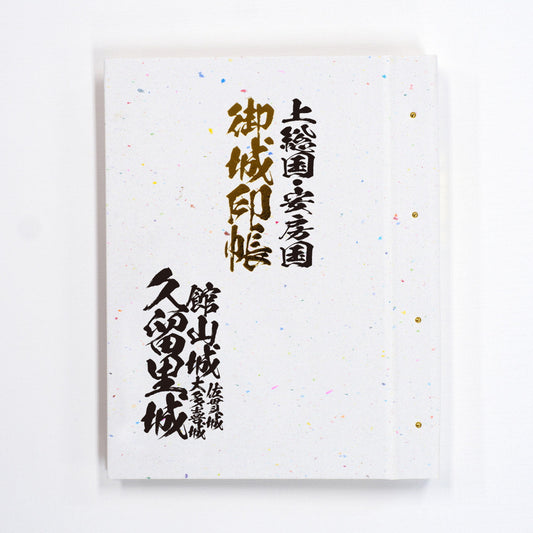 上総国・安房国
御城印帳
佐貫城
大多喜城
館山城
久留里城